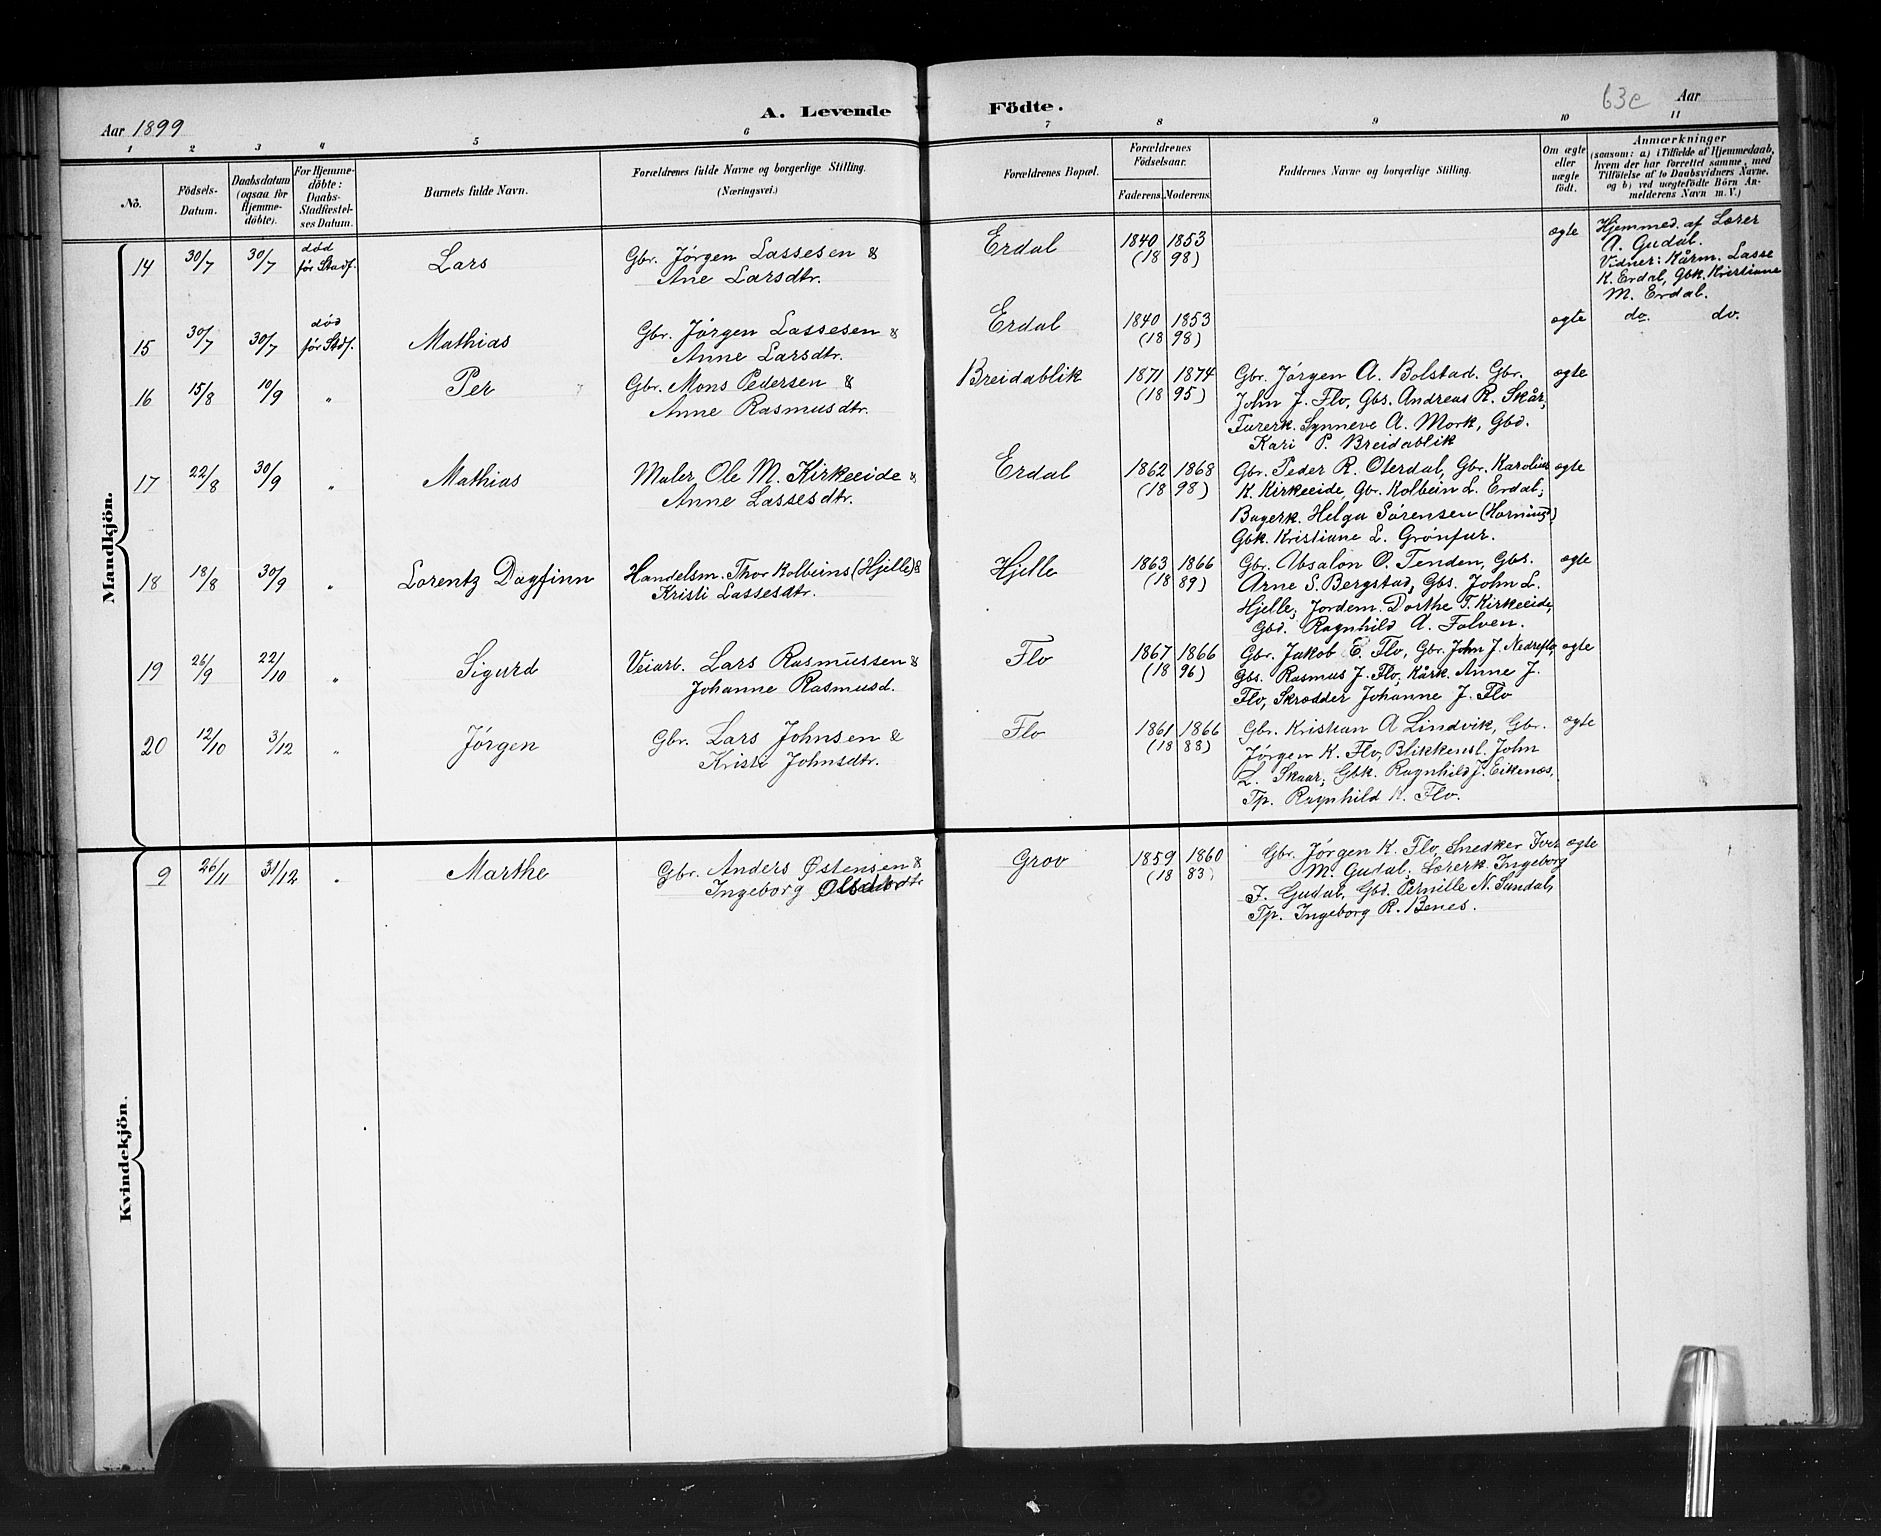 Aar 1899
A. Levende Födte.
63c
Aar
1 2 3 4 5 6 7 8 9 10 11
No.
Födsels-Datum.
Daabsdatum (ogsaa for Hjemmedöbte).
For Hjemmedöbte: Daabs-Stadfæstelses Datum.
Barnets fulde Navn.
Forældrenes fulde Navne og borgerlige Stilling.
(Næringsvei.)
Forældrenes Bopæl.
Forældrenes Födselsaar.
Faderens. Moderens.
Faddernes Navne og borgerlige Stilling.
Om ægte eller uægte födt.
Anmærkninger
(saasom: a) i Tilfælde af Hjemmedaab,
hvem der har forrettet samme, med
Tilföielse af to Daabsvidners Navne.
og b) ved uægtefödte Börn An-
melderens Navn m. V.)
Mandkjön.
14 30/7 30/7 død før Stadf. Lars Gbr. Jørgen Lassesen &
Ane Larsdtr.
Erdal 1840 1853
(18 98)
ægte
Hjemmed. af Lærer
A. Gudal.
Vidner: Kårm. Lasse
K. Erdal, Gbk. Kristiane
M. Erdal.
15 30/7 30/7 død før Stdf. Mathias Gbr. Jørgen Lassesen &
Anne Larsdtr.
Erdal 1840 1853
(18 98)
ægte do. do.
16 15/8 10/9 " Per Gbr. Mons Pedersen &
Anne Rasmusdtr.
Breidablik 1871 1874
(18 95)
Gbr. Jørgen A. Bolstad. Gbr.
John J. Flo, Gbs. Andreas R. Skår,
Furerk. Synneve A. Mork, Gbd.
Kari P. Breidablik
ægte
17 22/8 30/9 " Mathias Maler Ole M. Kirkeeide &
Anne Lassesdtr.
Erdal 1862 1868
(18 98)
Gbr. Peder R. Oterdal, Gbr. Karolius
K. Kirkeeide, Gbr. Kolbein L. Erdal;
Bagerk. Helga Sørensen
Gbk. Kristiane L. Grønfur.
ægte
18 18/8 30/9 " Lorentz Dagfinn Handelsm. Thor Kolbeins (Hjelle) &
Kristi Lassesdtr.
Hjelle 1863 1866
(18 89)
Gbr. Absalon O. Tenden, Gbs.
Arne S. Bergstad, Gbs. John L.
Hjelle; Jordem. Dorthe T. Kirkeeide,
Gbd. Ragnhild A. Folven.
ægte
19 26/9 22/10 " Sigurd Veiarb. Lars Rasmussen &
Johanne Rasmusd.
Flo 1867 1866
(18 96)
Gbr. Jakob E. Flo, Gbr. John J. Nedreflo,
Gbs. Rasmus J. Flo, Kårk. Anne J.
Flo, Skrædder Johanne J. Flo
ægte
20 12/10 3/12 " Jørgen Gbr. Lars Johnsen &
Kristi Johnsdtr.
Flo 1861 1866
(18 88)
Gbr. Kristian A Lindvik, Gbr.
Jørgen K. Flo, Blikkensl. John
L. Skaar; Gbk. Ragnhild J. Eikenæs,
Tp. Ragnhild K. Flo.
ægte
Kvindekjön.
9 26/11 31/12 " Marthe Gbr. Anders Østensen &
Ingeborg
Grov 1859 1860
(18 83)
Gbr. Jørgen K. Flo, Snedker Iver
M. Gudal; Lærerk. Ingeborg
J. Gudal, Gbd. Pernille N. Sundal,
Tp. Ingeborg R. Benes.
ægte